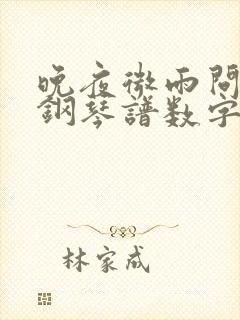 晚夜微雨問
鋼琴譜数字
林家成